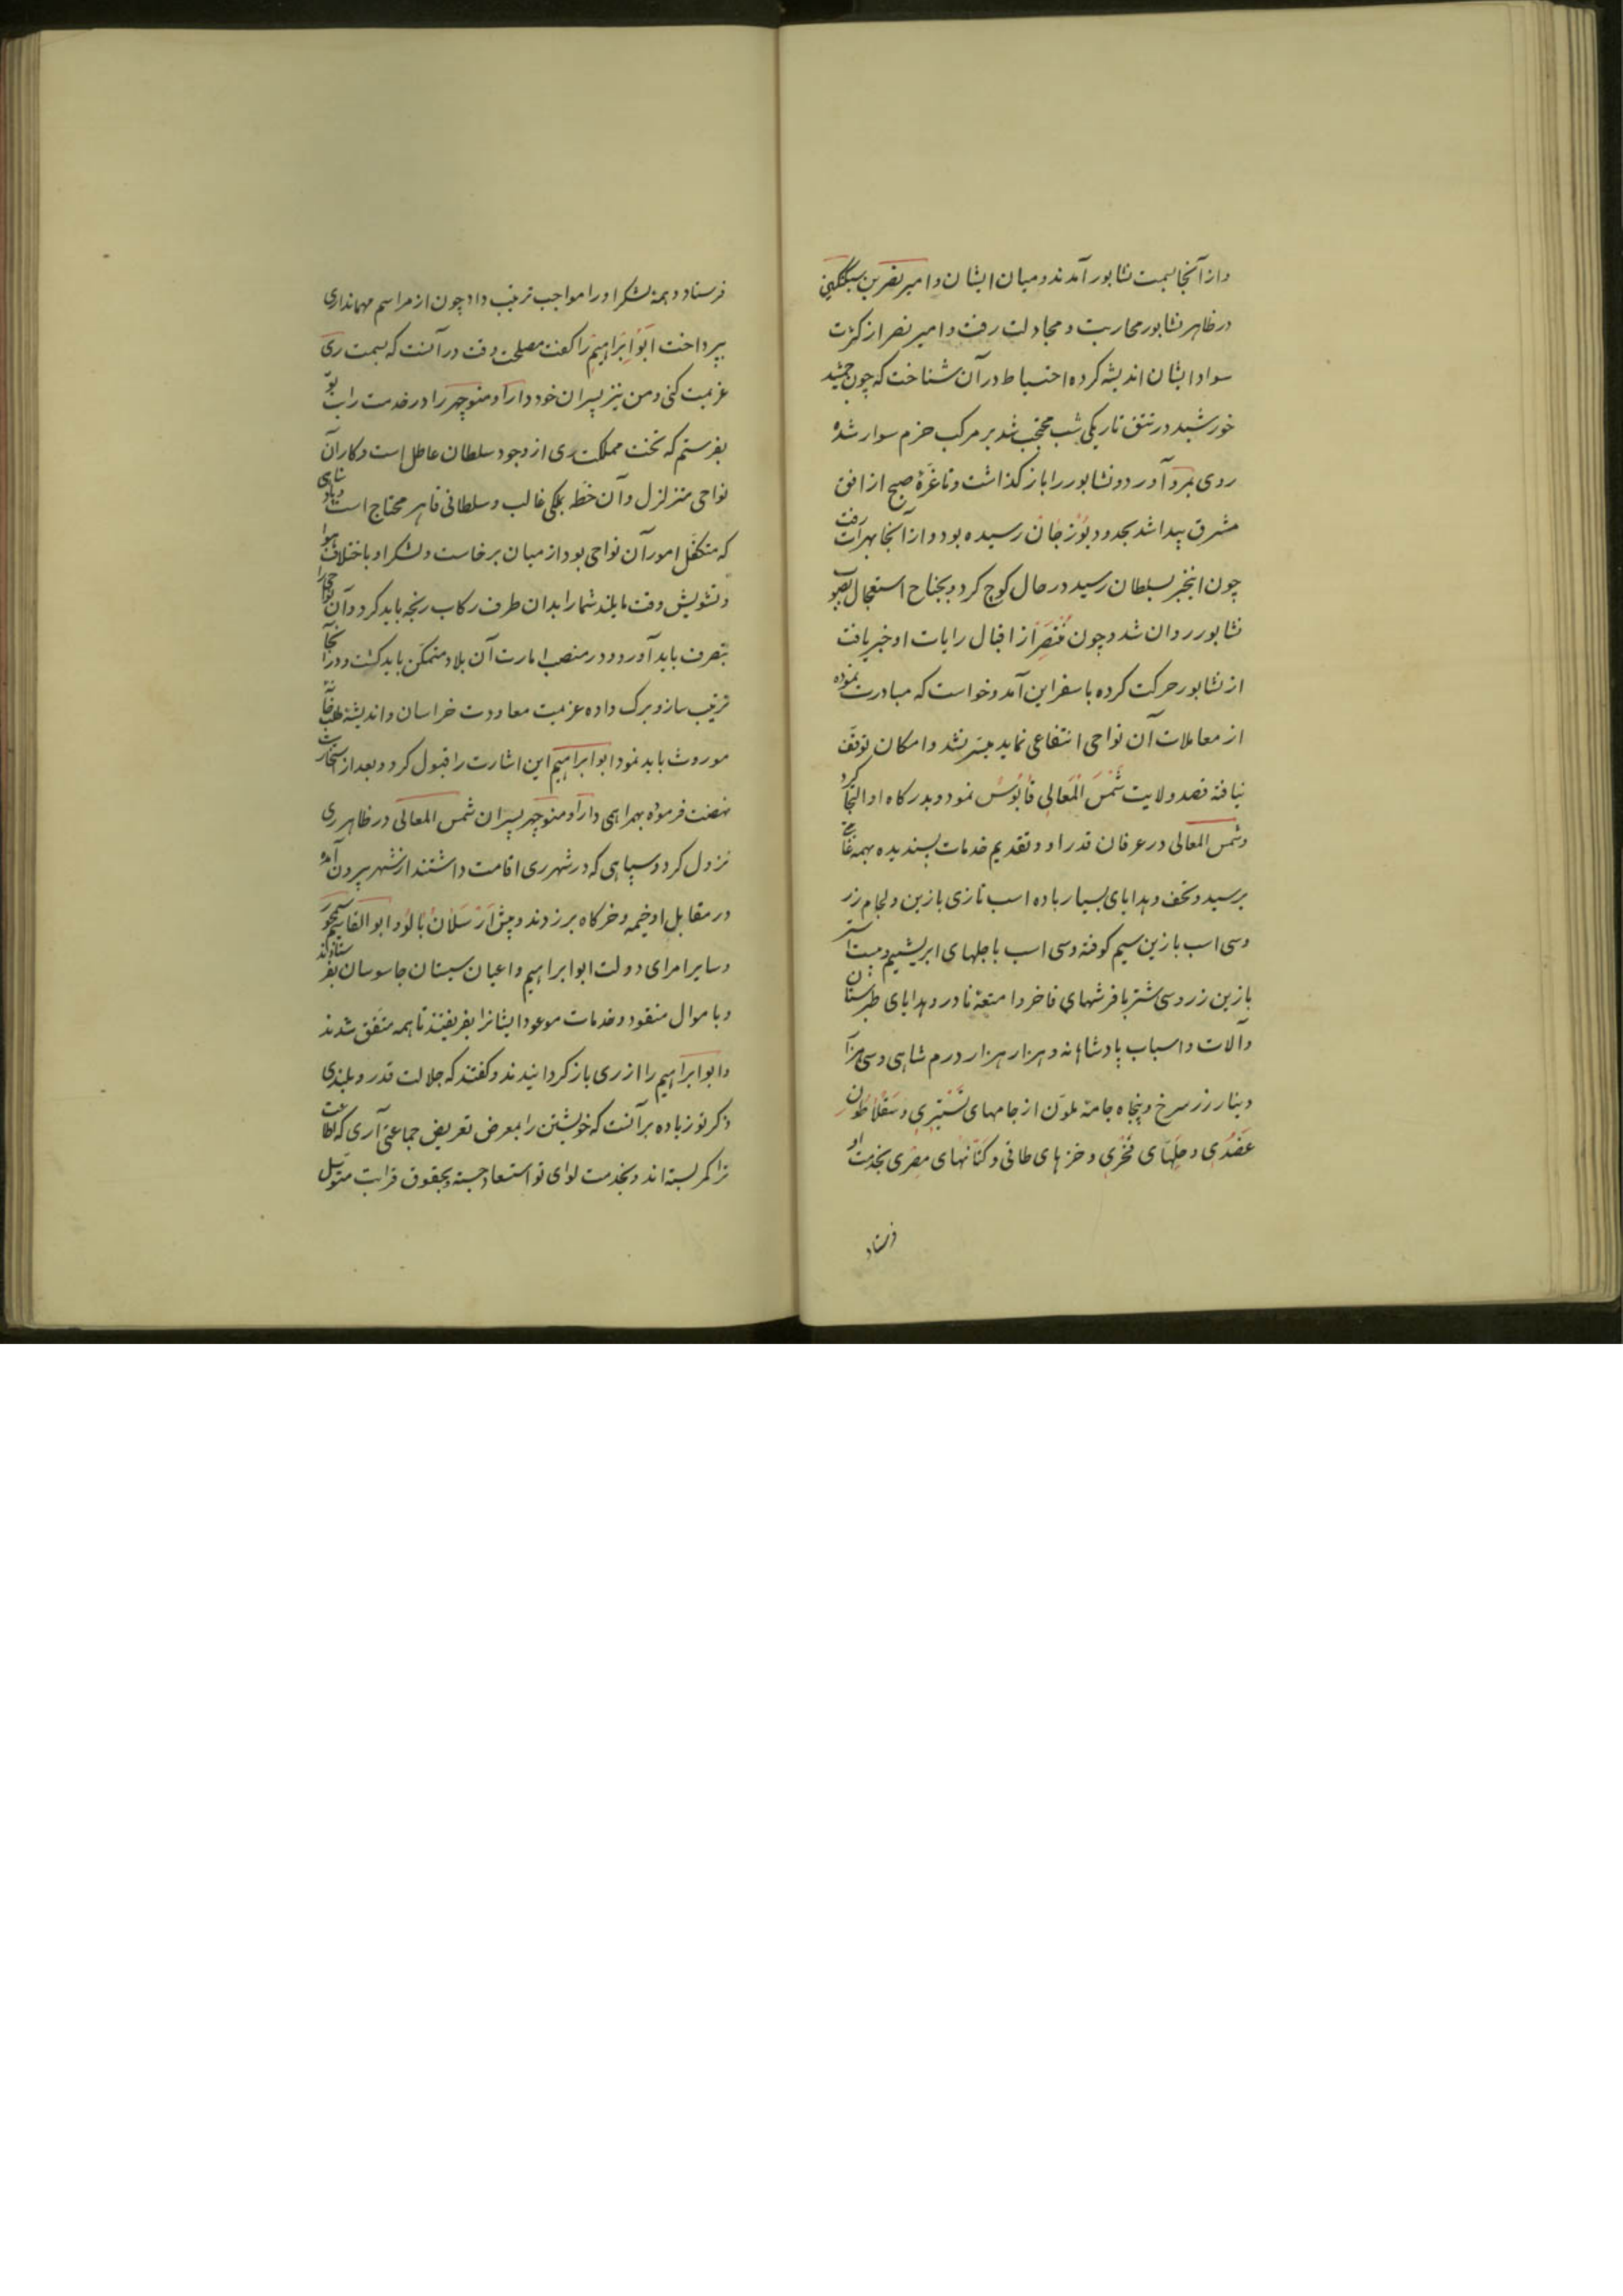 و از آنجا بسمت نشابور آمدند و میان ایشان و امیر نصر بن سبکتگین
در ظاهر نشابور محاربت و مجادلت رفت و امیر نصر از کثرت
سواد ایشان اندیشه کرده احتیاط در آن شناخت که چون جمشید
خورشید در تتق تاریکی شب محتجب شد بر مرکب حزم سوار شده
روی بمرو آورد و نشابور را باز گذاشت و تا غرّهٔ صبح از افق
مشرق پیدا شد بحدود بُوزْجان رسیده بود و از آنجا بهرات رفت
چون اینخبر بسلطان رسید در حال کوچ کرد و بجناح استعجال بصوب
نشابور روان شد و چون مُنتَصِر از اقبال رایات او خبر یافت
از نشابور حرکت کرده باسفراین آمد و خواست که مبادرت نموده
از معاملات آن نواحی انتفاعی نماید میسّر نشد و امکان توقف
نیافته قصد ولایت شَمْسَ الْمَعالی قابُوسْ نمود و بدرگاه او التجا کرد
و شمس المعالی در عرفان قدر او و تقدیم خدمات پسندیده بهمه غایتی
برسید و تحف و هدایای بسیار با ده اسب تازی با زین و لجام زر
و سی اسب با زین سیم کوفته و سی اسب با جلهای ابریشیم و بیست استر
با زین زر و سی شتر با فرشهای فاخر و امتعهٔ نادر و هدایای طبرستان
و آلات و اسباب پادشاهانه و هزار هزار درم شاهی و سی هزار
دینار زر سرخ و پنجاه جامهٔ ملوّن از جامهای تُسْتَری و سَقْلاطُون
عَضُدی و حلّهای فَخْری و خزهای طاقی و کتّانهای مِصْری بخدمت او
فرستاد
فرستاد و همهٔ لشکر او را مواجب ترتیب داد چون از مراسم مهمانداری
بپرداخت اَبُو اِبْراهِیمْ را گفت مصلحت وقت در آنست که بسمت ری
عزیمت کنی و من نیز پسران خود دارا و منوچهر را در خدمت رایت تو
بفرستم که تخت مملکت ری از وجود سلطان عاطل است و کار آن
نواحی متزلزل و آن خطه بملکی غالب و سلطانی قاهر محتاج است
که متکفّل امور آن نواحی بود از میان برخاست و لشکر او باختلاف هوا
و تشویش وقت مایلند شما را بدان طرف رکاب رنجه باید کرد و آن نواحی را
بتصرف باید آورد و در منصب امارت آن بلاد متمکّن باید گشت و در آنجا
ترتیب ساز و برک داده عزیمت معاودت خراسان و اندیشهٔ طلب خانهٔ
موروث باید نمود ابو ابراهیم این اشارت را قبول کرد و بعد از استخارت
نهضت فرموده بهمراهی دارا و منوچهر پسران شمس المعالی در ظاهر ری
نزول کرد و سپاهی که در شهر ری اقامت داشتند از شهر بیرون آمده
در مقابل او خیمه و خرگاه برزدند و پیش اَرْسَلانْ بالُو و ابو القاسم سیمجور
و سایر امرای دولت ابو ابراهیم و اعیان سیستان جاسوسان بفرستادند
و باموال منقود و خدمات موعود ایشانرا بفریفتند تا همه متّفق شدند
و ابو ابراهیم را از ری باز گردانیدند و گفتند که جلالت قدر و بلندی
ذکر تو زیاده بر آنست که خویشتن را بمعرض تعریض جماعتی آری که بطاعت
ترا کمر بسته‌اند و بخدمت لوای تو استسعاد جسته و بحقوق قرابت متوسّل